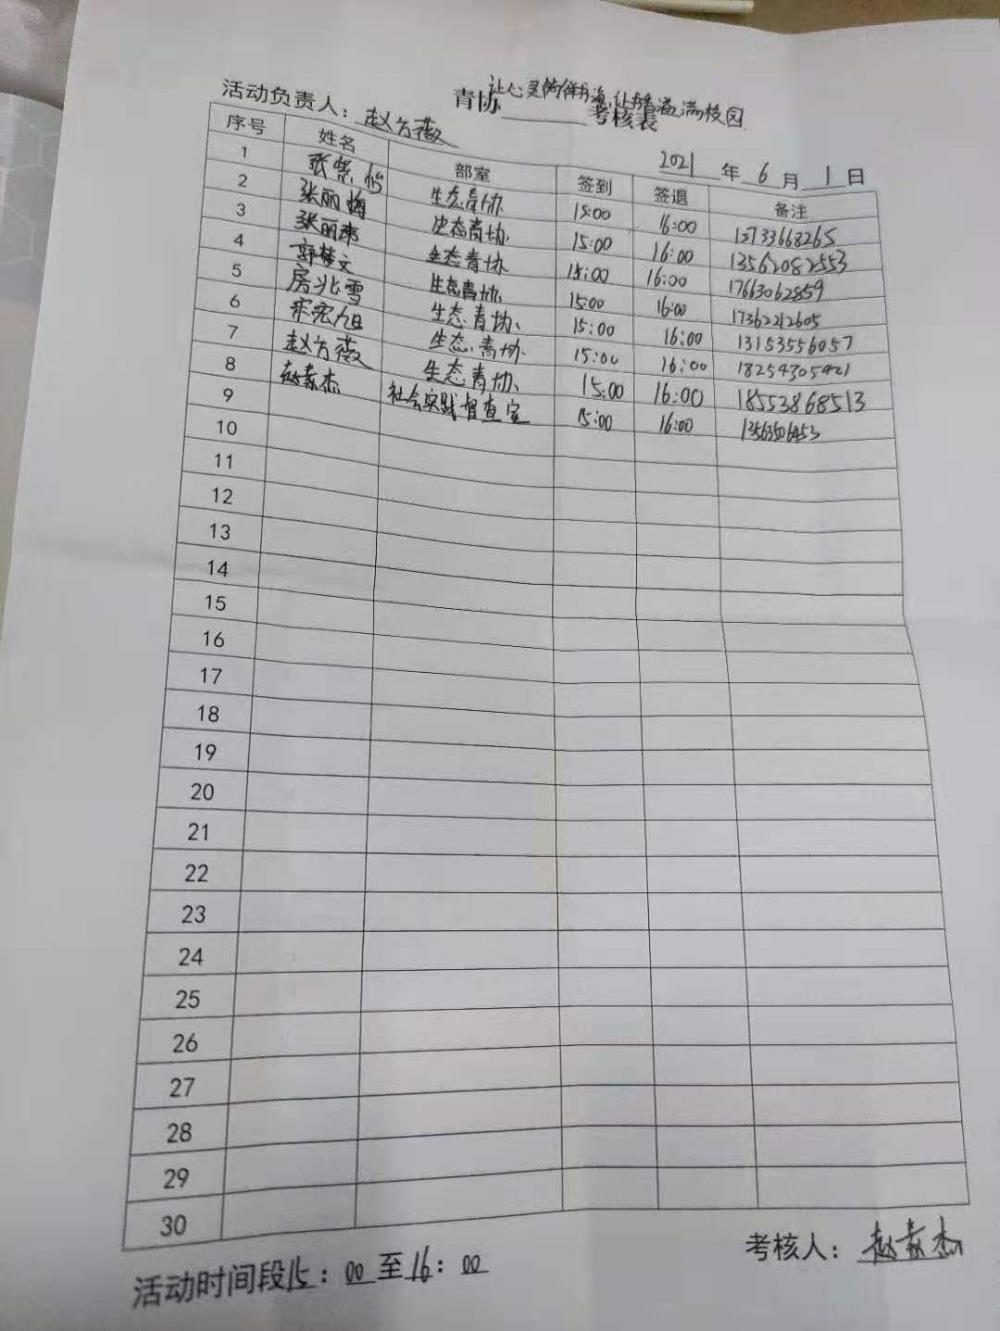 青协让心灵徜徉书海,让书香溢满校园考核表
活动负责人：赵方薇
2021年6月1日
序号 姓名 部室 签到 签退 备注
1 张紫怡 生态青协 15:00 16:00 15733668265
2 张丽梅 生态青协 15:00 16:00 13562082553
3 张丽苹 生态青协 15:00 16:00 17663062859
4 郭梦文 生态青协 15:00 16:00 17362212605
5 房兆雪 生态青协 15:00 16:00 13153556057
6 宋宏旭 生态青协 15:00 16:00 18254305421
7 赵方薇 生态青协 15:00 16:00 18553868513
8 社会实践督查室 15:00 16:00
9
10
11
12
13
14
15
16
17
18
19
20
21
22
23
24
25
26
27
28
29
30
活动时间段15：00至16：00
考核人：